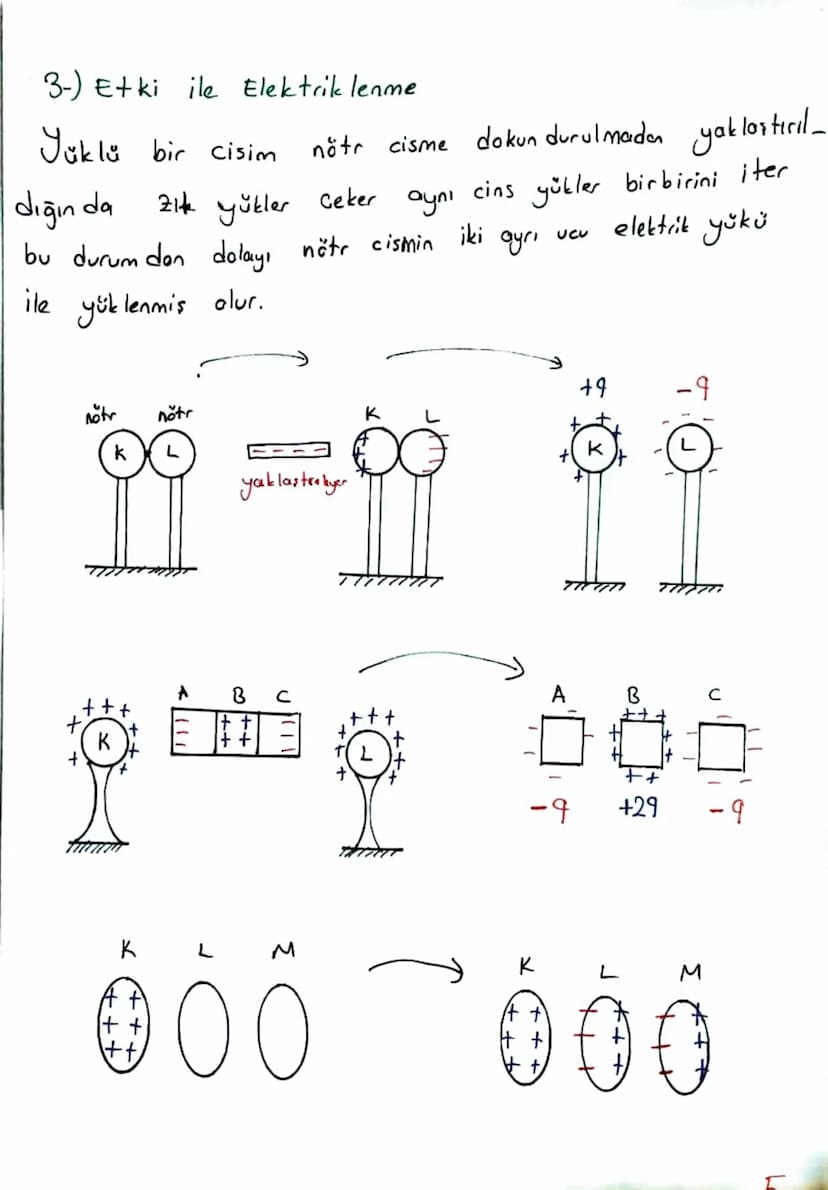 3-) Etki ile Elektriklenme
Yüklü bir cisim nötr cisme dokundurulmadan yaklaştırıl-
dığında zıt yükler çeker aynı cins yükler birbirini iter
bu durumdan dolayı nötr cismin iki ayrı ucu elektrik yükü
ile yüklenmiş olur.
+q -q
nötr nötr K L
K L K L
yaklaştırılıyor
A B C A B C
K L
-q +2q -q
K L M K L M
5